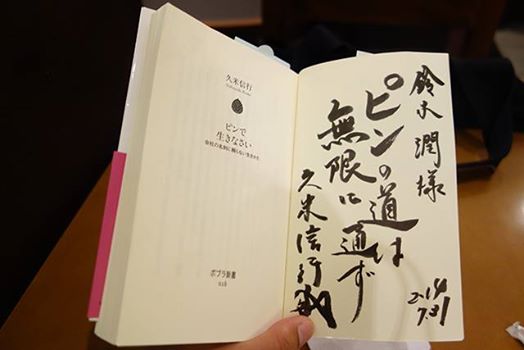 久米信行
Nobuyuki Kume
ピンで
生きなさい
会社の名刺に頼らない生き方
ポプラ新書
鈴木 潤様
ピンの道は
無限に通ず
久米信行
2014
7.31